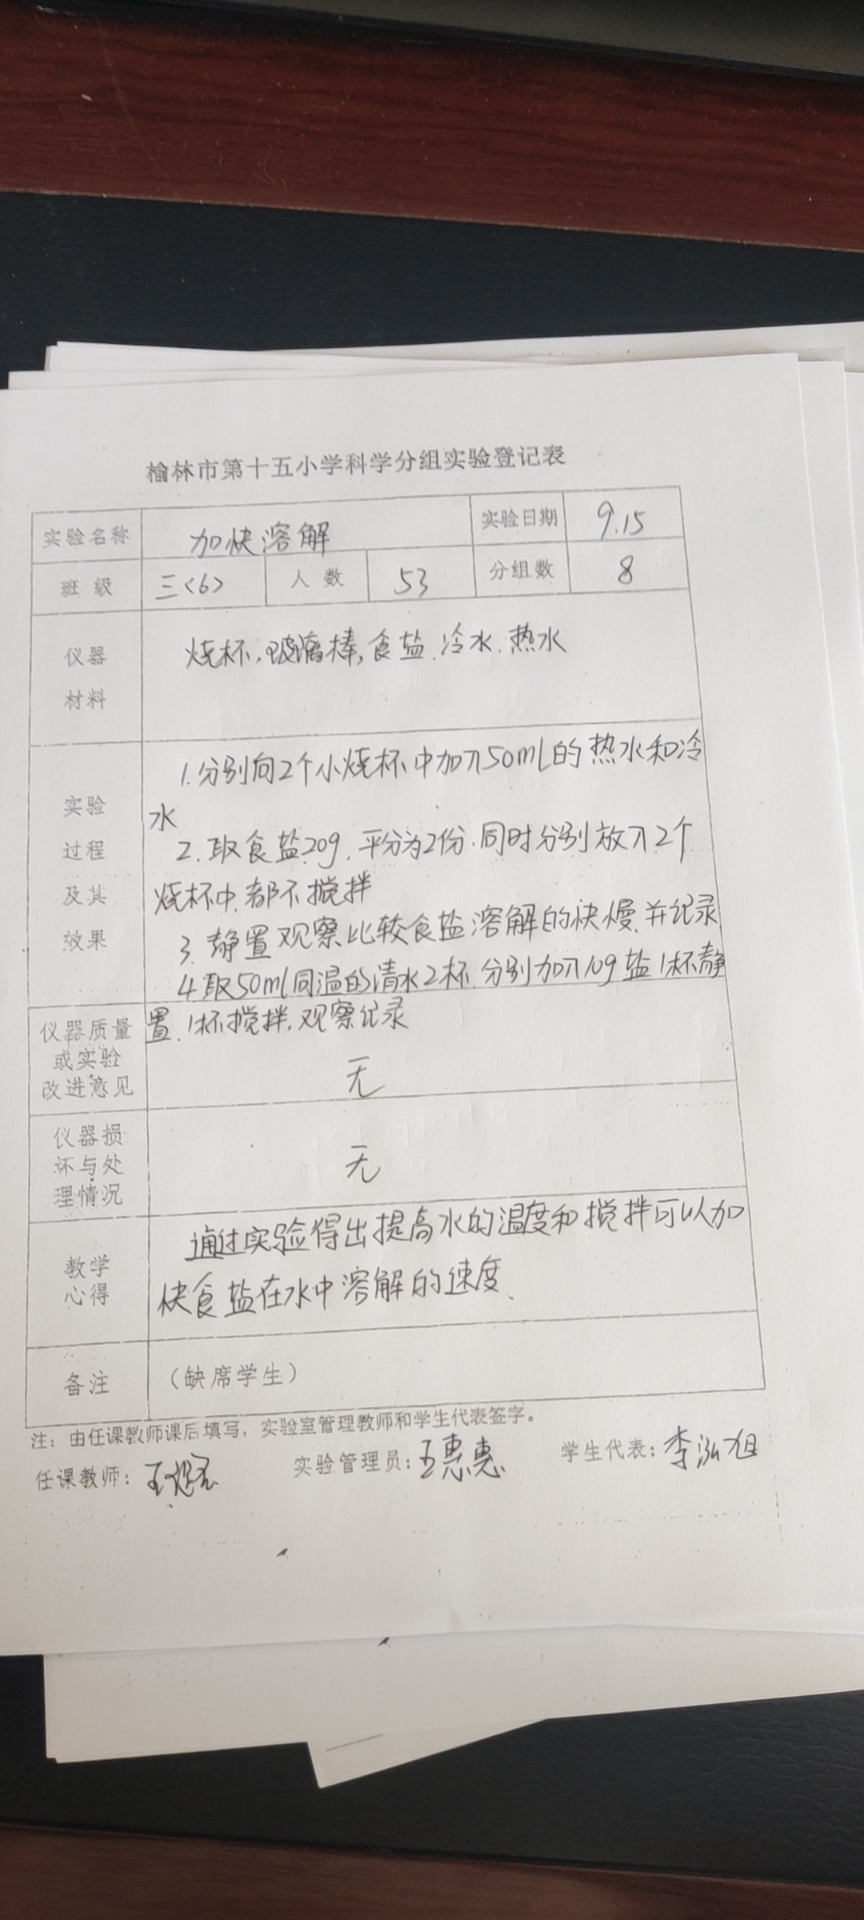 榆林市第十五小学科学分组实验登记表
实验名称 加快溶解 实验日期 9.15
班级 三<6> 人数 53 分组数 8
仪器 烧杯,玻璃棒,食盐、冷水、热水
材料
1.分别向2个小烧杯中加入50mL的热水和冷
实验 水
过程 2.取食盐20g,平分为2份.同时分别放入2个
及其 烧杯中.都不搅拌
效果 3.静置观察比较食盐溶解的快慢.并记录
4.取50ml同温的清水2杯.分别加入10g盐1杯静
仪器质量 置.1杯搅拌.观察记录
或实验
改进意见 无
仪器损
坏与处 无
理情况
通过实验得出提高水的温度和搅拌可以加
教学
心得 快食盐在水中溶解的速度、
备注 (缺席学生)
注:由任课教师课后填写,实验室管理教师和学生代表签字。
任课教师:王 实验管理员:王惠惠 学生代表:李泓旭